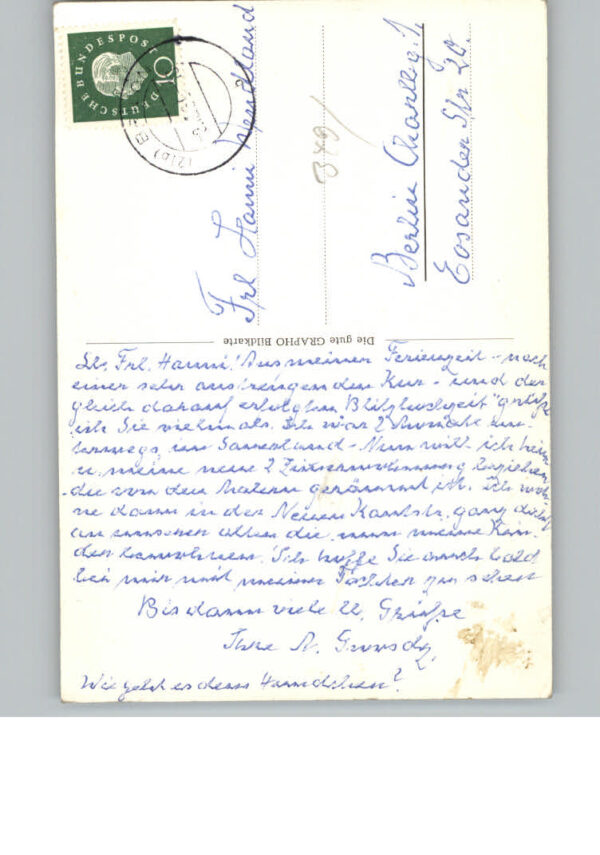 DEUTSCHE BUNDESPOST
10
(21b)
Frl Hanni Wendtland
378/
Berlin Charlbg. 1,
Eosander Str 20.
Die gute GRAPHO Bildkarte
Lb. Frl. Hanni! Aus meiner Ferienzeit - nach
einer sehr anstrengenden Kur - und der
gleich darauf erfolgten Blitzhochzeit grüße
ich Sie vielmals. Ich war 2 Monate un-
terwegs im Sauerland - Nun will ich heim
u. meine neue 2 Zimmerwohnung beziehen,
die von den Malern geräumt ist. Ich woh-
ne dann in der Neuen Kantstr. ganz dicht
an unserer alten die nun meine Kin-
der bewohnen. Ich hoffe Sie auch bald
bei mir mit meiner Tochter zu sehen
Bis dann viele ll. Grüße
Ihre A.
Wie geht es dem Hundchen?